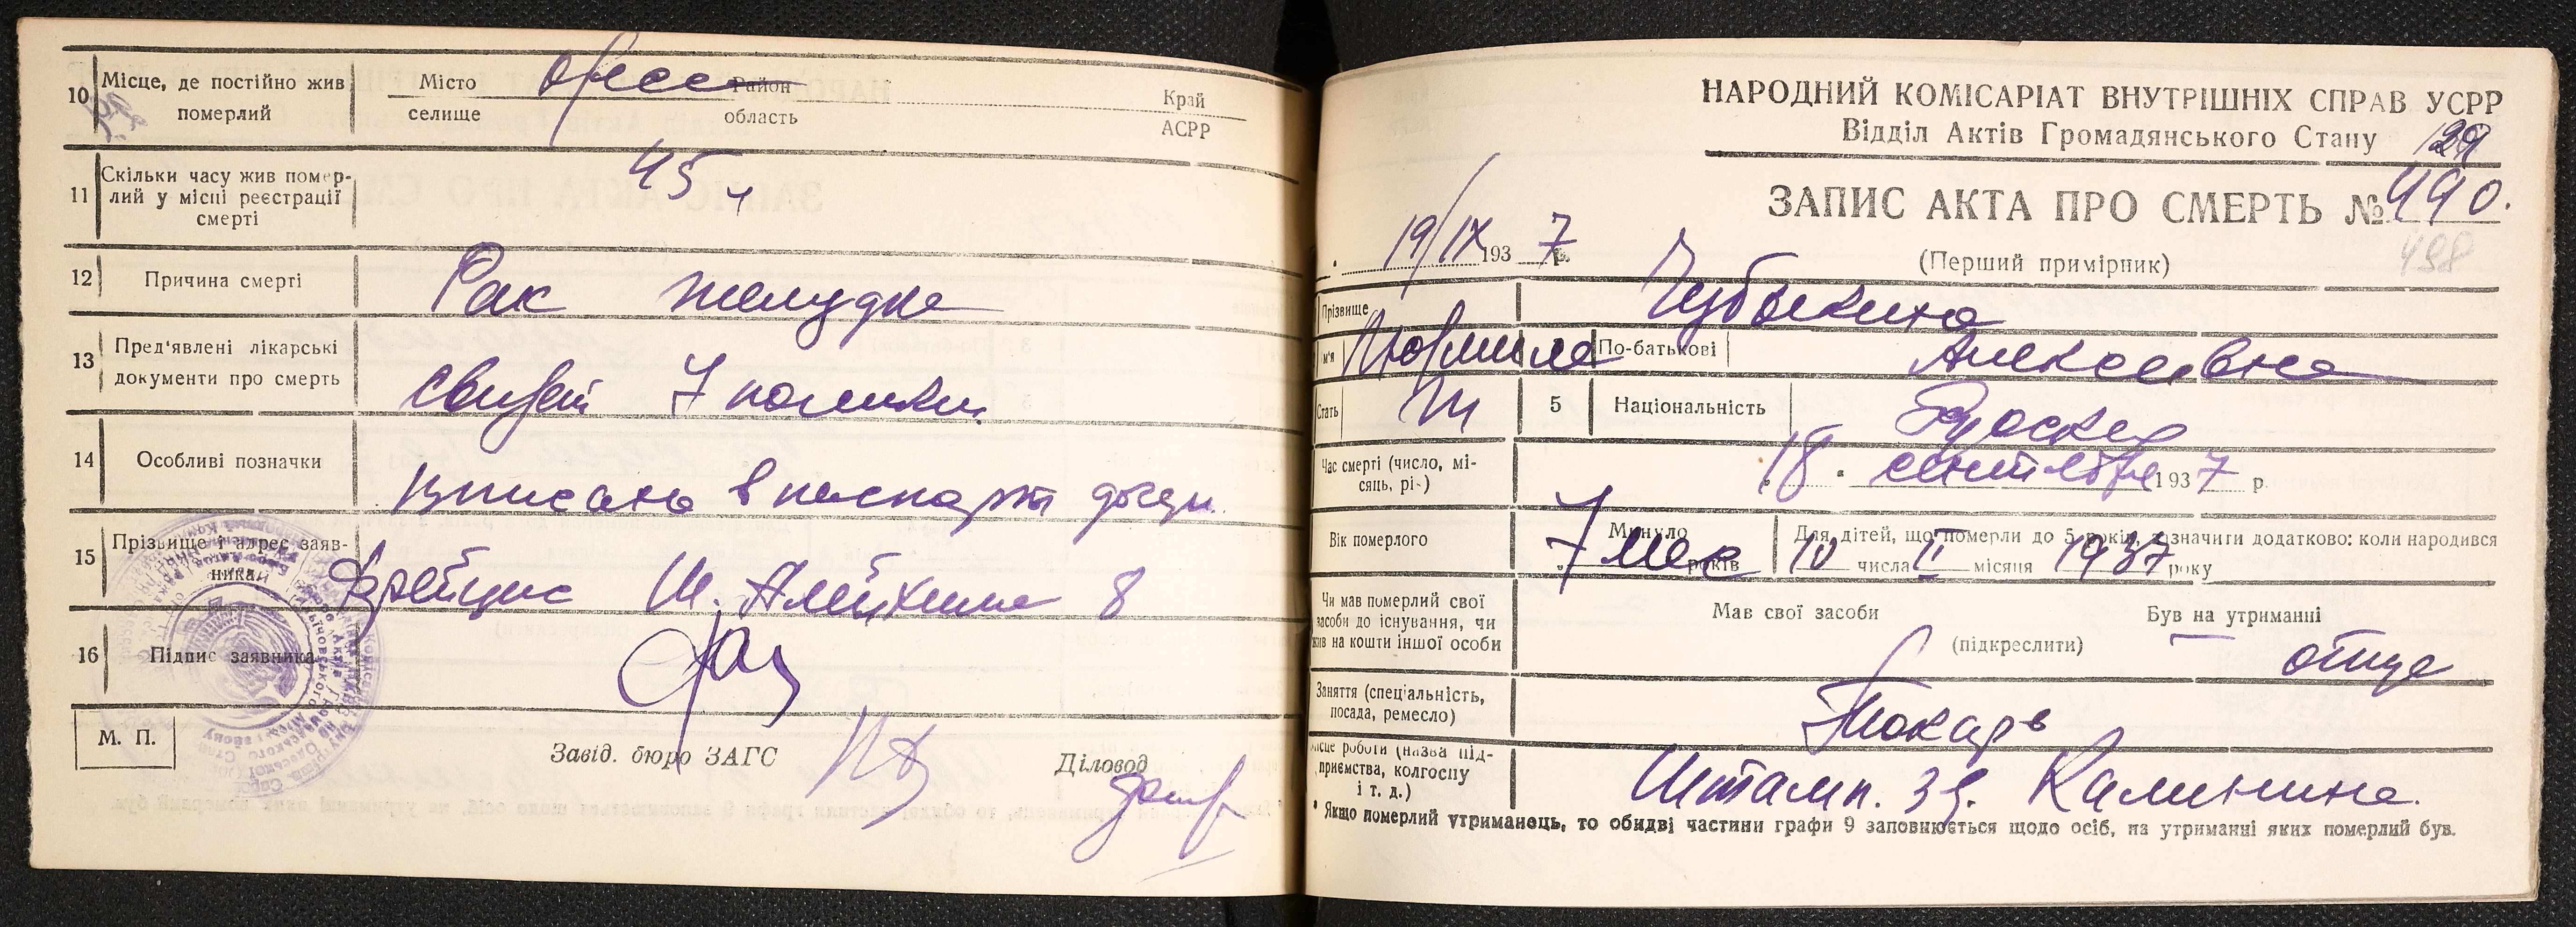 10 Місце, де постійно жив померлий
Місто селище Одесса Район область Край АСРР
11 Скільки часу жив померлий у місці реєстрації смерті
45
12 Причина смерті Рак желудка
13 Пред'явлені лікарські документи про смерть
7 поликл.
14 Особливі позначки
в паспорт
15 Прізвище і адрес заявника
8
16 Підпис заявника
М. П.
Завід. бюро ЗАГС Діловод
НАРОДНИЙ КОМІСАРІАТ ВНУТРІШНІХ СПРАВ УСРР
Відділ Актів Громадянського Стану
ЗАПИС АКТА ПРО СМЕРТЬ № 490.
498
19/IX 1937 р.
(Перший примірник)
Прізвище Чубыкина
м'я Людмила По-батькові Алексеевна
Стать Ж 5 Національність Русская
Час смерті (число, місяць, рі-) 18. сентября 1937 р.
Вік померлого Минуло 7 мес років
Для дітей, що померли до 5 років, зазначити додатково: коли народився
10 числа II місяця 1937 року
Чи мав померлий свої засоби до існування, чи жив на кошти іншої особи
Мав свої засоби Був на утриманні
(підкреслити)
отца
Заняття (спеціальність, посада, ремесло) Токарь
Місце роботи (назва підприємства, колгоспу і т. д.) Штамп. зд. Калинина.
* Якщо померлий утриманець, то обидві частини графи 9 заповнюється щодо осіб, на утриманні яких померлий був.